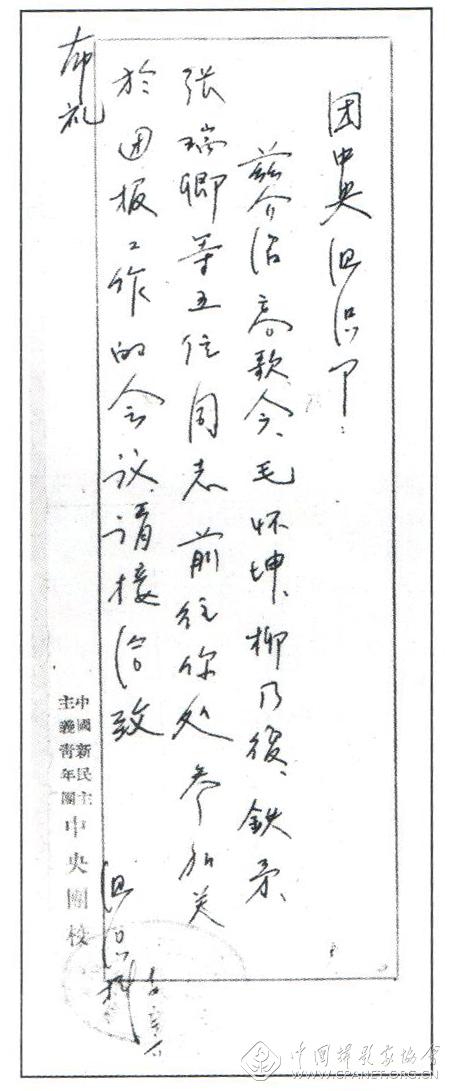 团中央组织卩:
兹介绍高歌今、毛怀坤、柳乃復、鉄矛、
张瑞卿等五位同志前往你处参加关
於团报工作的会议,请接洽 致
布礼
组织科
中國新民主
主義靑年團
中央團校
中国摄影家协会
WWW.CPANET.ORG.CN